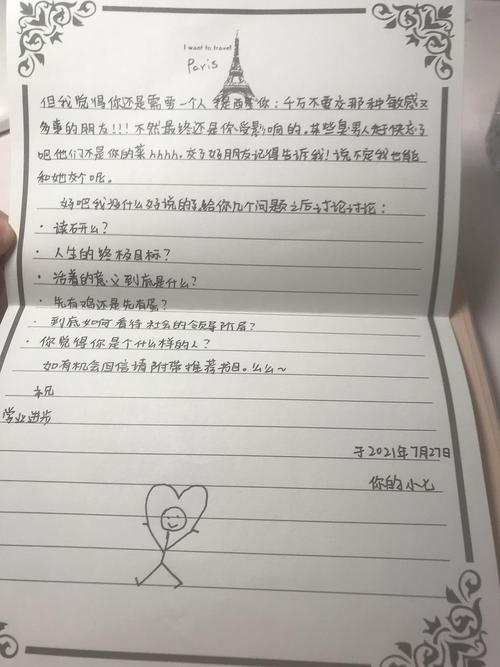 I want to travel
Paris
但我觉得你还是需要一个人提醒你：千万不要交那种敏感又
多事的朋友!!!不然最终还是你受影响的。某些臭男人赶快忘了
吧他们不是你的菜hhhh。交了好朋友记得告诉我！说不定我也能
和她交个呢。
好吧我没什么好说的了，给你几个问题之后讨论讨论：
· 读研么？
· 人生的终极目标？
· 活着的意义到底是什么？
· 先有鸡还是先有蛋？
· 到底如何看待社会的领导阶层？
· 你觉得你是个什么样的人？
如有机会回信请附带推荐书目。么么~
祝
学业进步
于2021年7月27日
你的小七